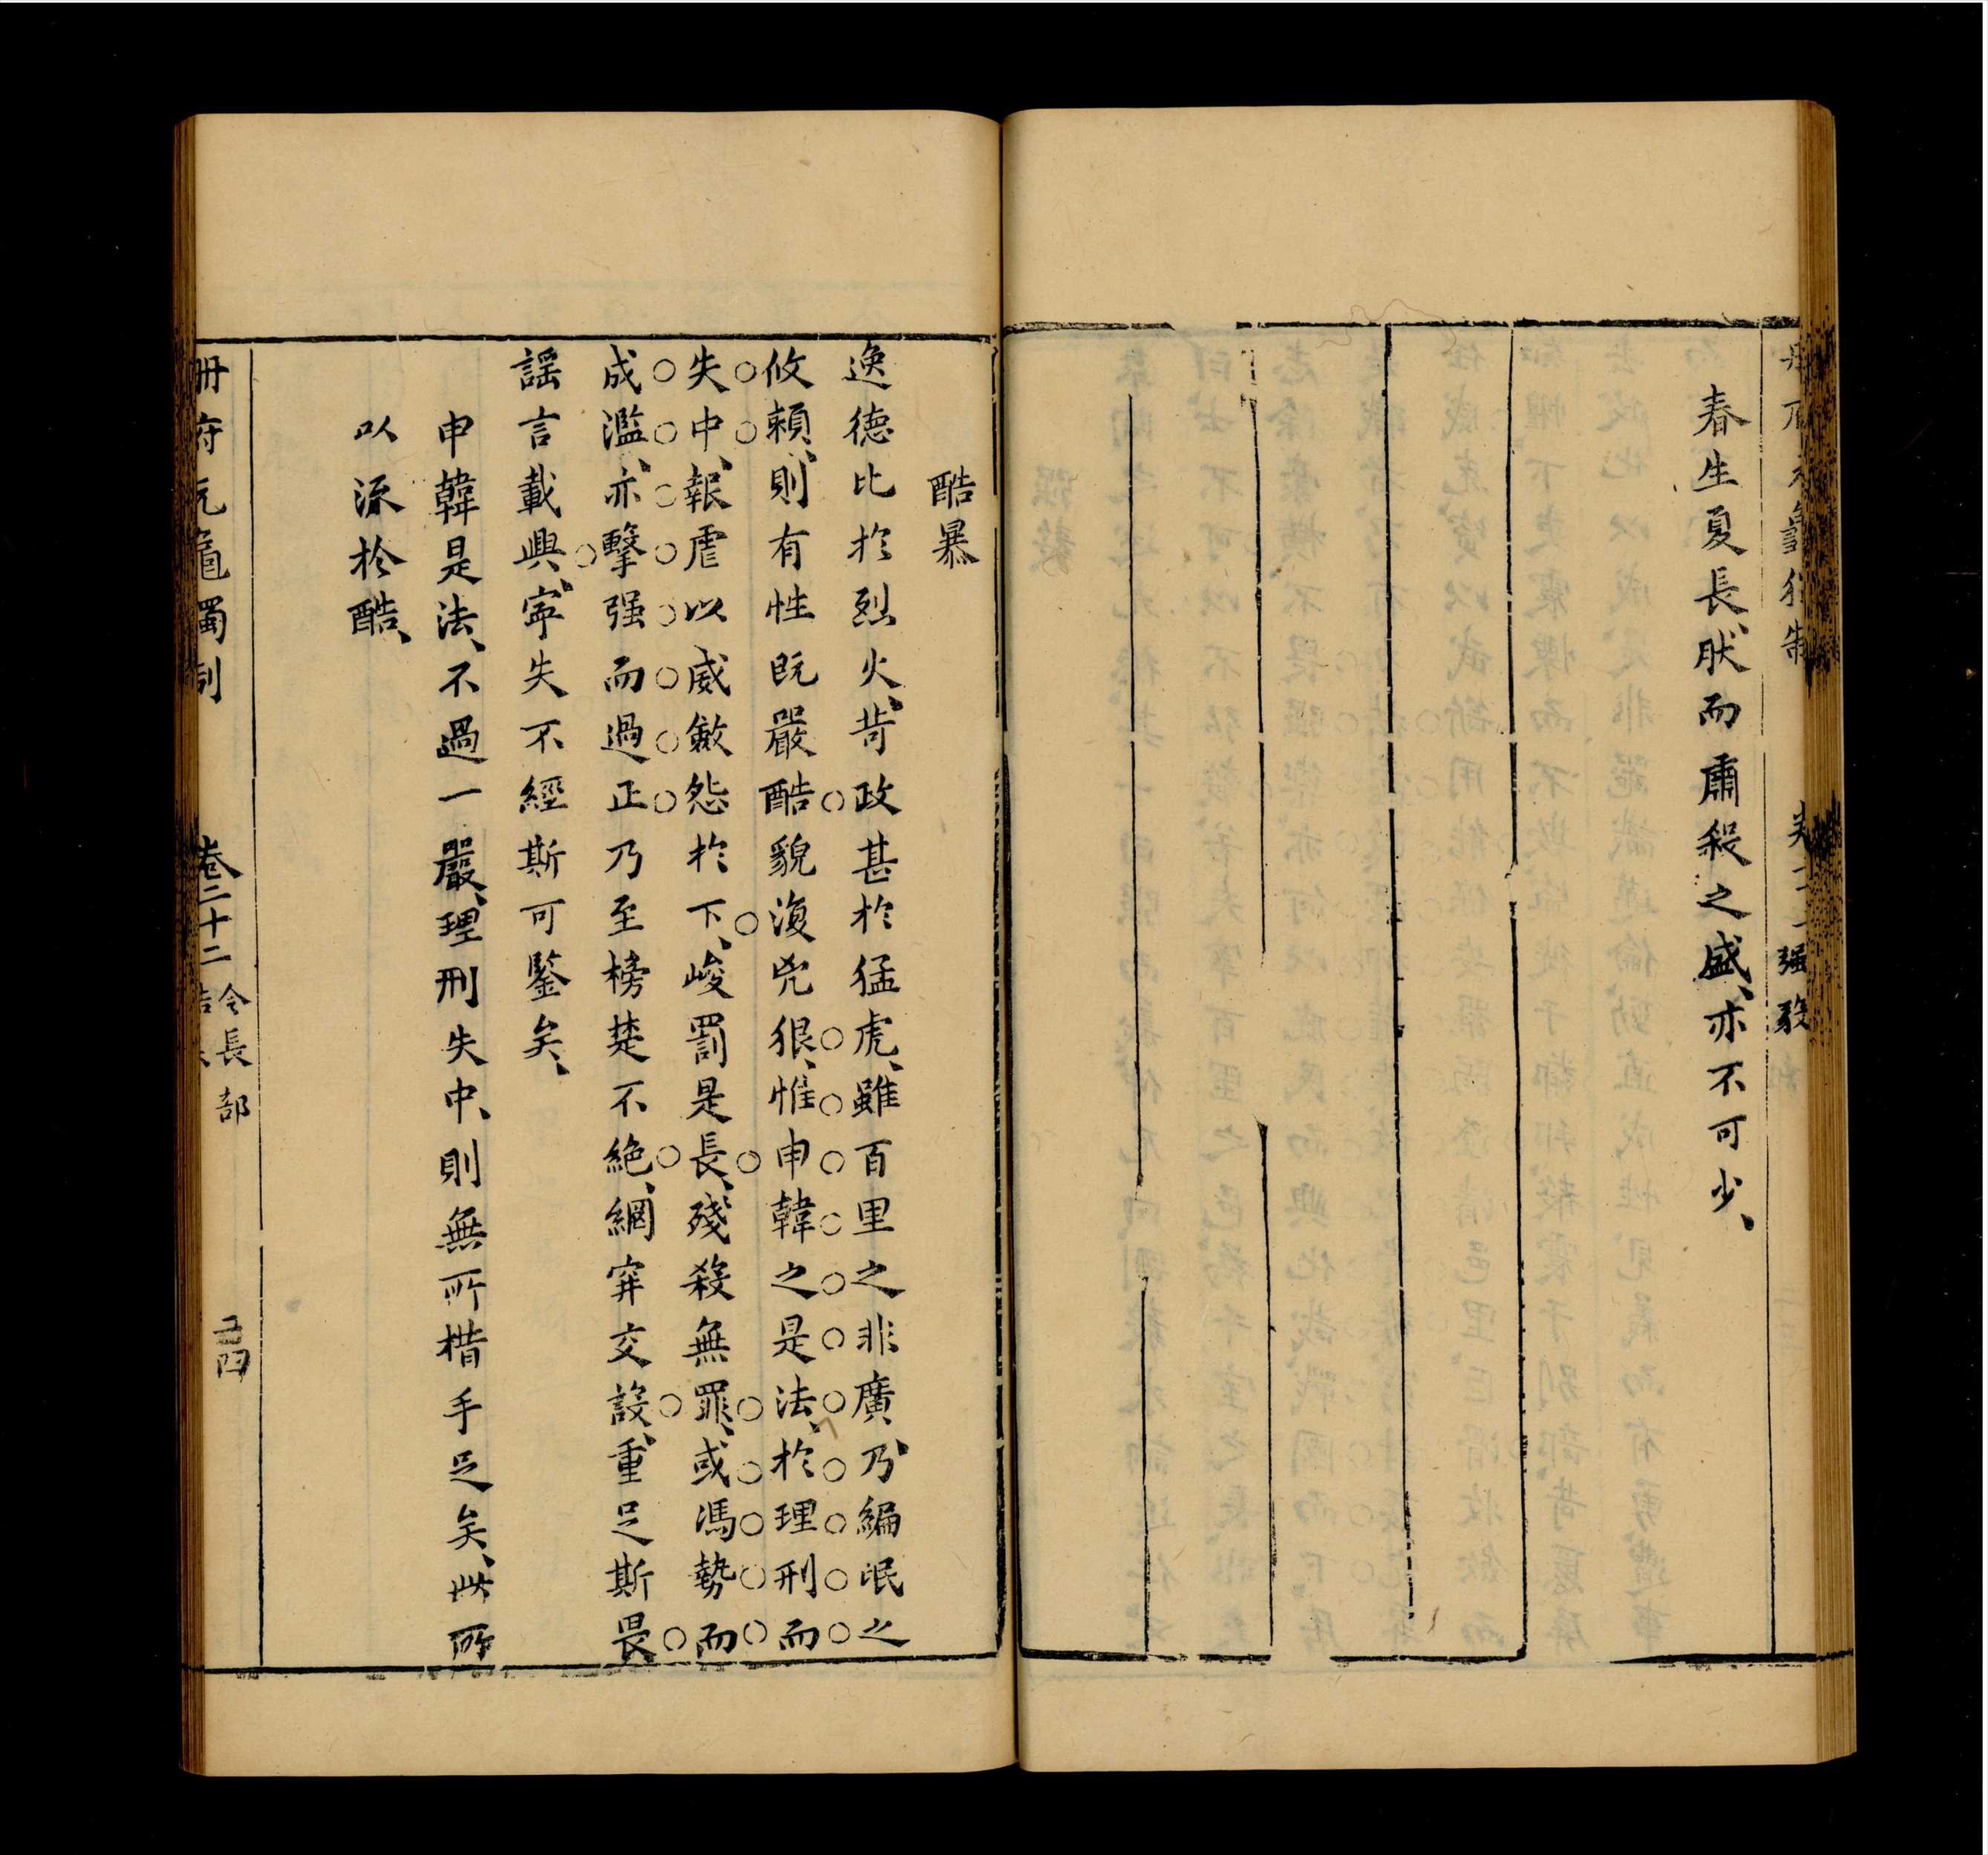 强毅
春生夏長、肰而肅殺之盛、亦不可少、
酷暴
逸德比於烈火、苛政甚於猛虎、雖百里之非廣、乃編氓之
攸賴、則有性既嚴酷貌復兇狠、惟申韓之是法、於理刑而
失中、報虐以威斂怨於下、峻罰是長、殘殺無罪、或馮勢而
成濫、亦擊强而過正乃至榜楚不絕、網穽交設、重足斯畏
謡言載興、寧失不經斯可鑒矣、
申韓是法、不過一嚴、理刑失中、則無所楷手足矣、此所
以流於酷、
冊府元龜獨制
卷二十二
令長部